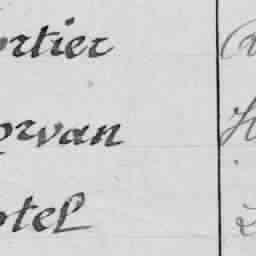 ortier
orvan
otel